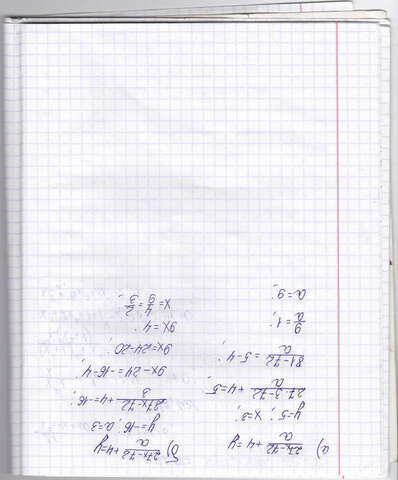 а) 27x-72/a + 4 = y
y=5; x=3;
27·3-72/a + 4 = 5
81-72/a = 5-4;
9/a = 1;
a = 9;
б) 27x-72/a + 4 = y
y=-16; a=3
27x-72/3 + 4 = -16;
9x-24 = -16-4;
9x=24-20;
9x = 4;
x = 4/9 = 2/3;